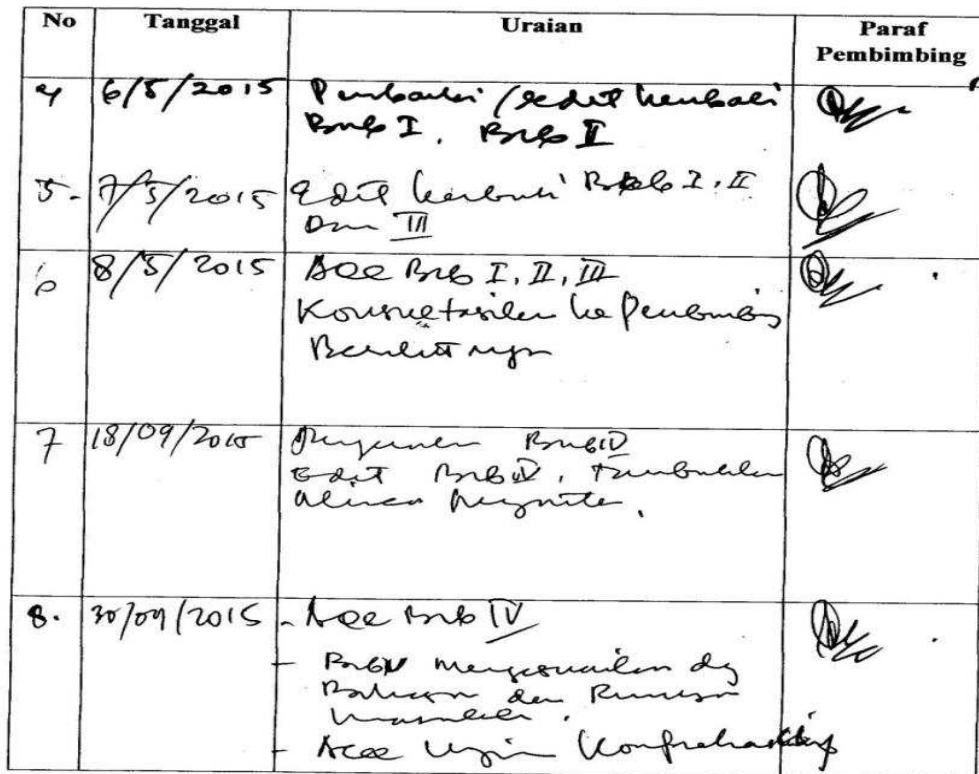 No Tanggal Uraian Paraf Pembimbing
4 6/5/2015 Perbaiki / edit kembali
Bab I. Bab II
5. 7/5/2015 Edit kembali Bab I, II
Dan III
6 8/5/2015 Acc Bab I, II, III
Konsultasikan ke Pembimbing
Berikutnya
7 18/09/2015 Bab IV
Edit Bab IV, Tambahkan
8. 30/09/2015 - Acc Bab IV
- Bab V menyesuaikan dg
Batasan dan Rumusan
Masalah.
- Acc Ujian Komprehensip